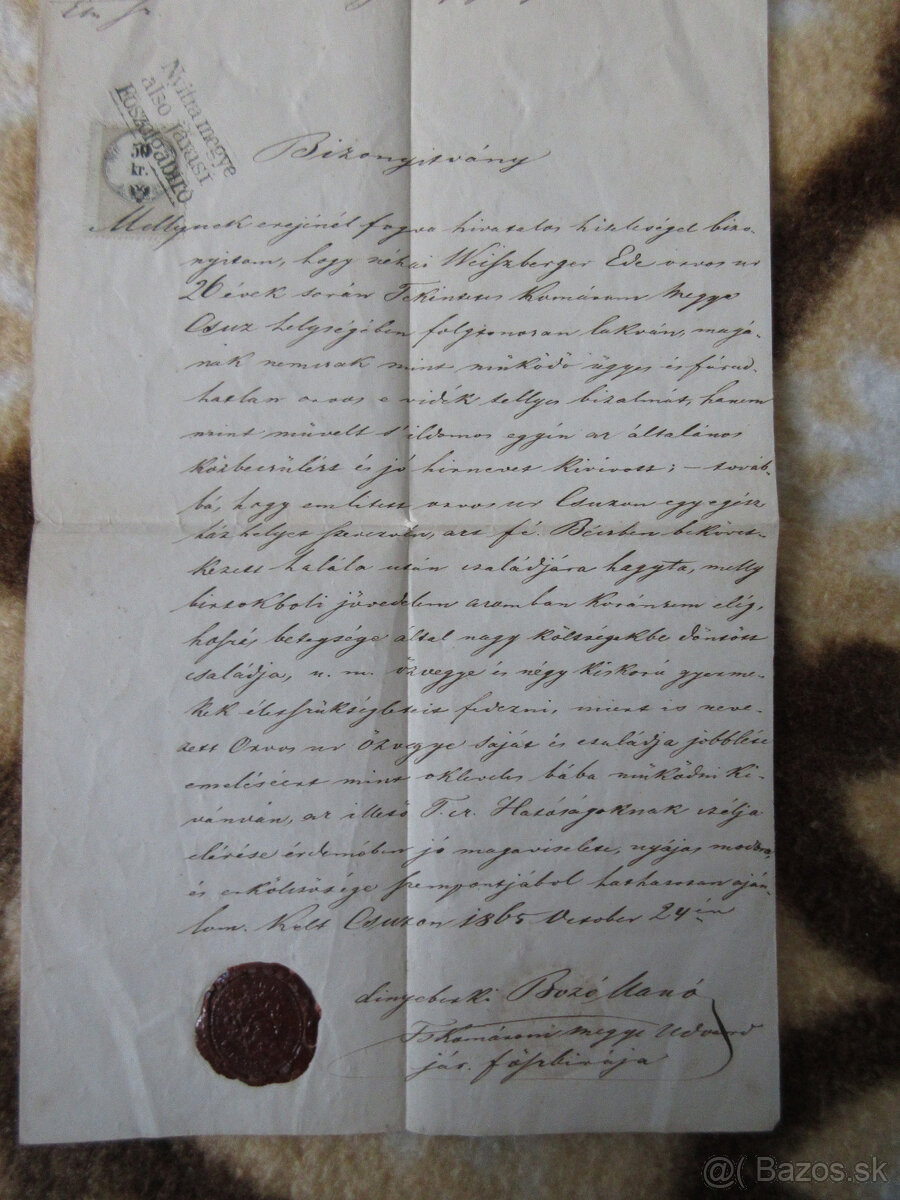 Nyitra megye
alsó járási
Főszolgabíró
50
kr.
Bizonyitvány
Mellynek erejénél fogva hivatalos hitelességel bizo-
nyitom, hogy néhai Weiszberger Ede orvos ur
26 évek során Tekintetes Komárom Megye
Csuz helységében folytonosan lakván, magá-
nak nemcsak mint működő ügyes és fárad-
hatlan orvos e vidék tellyes bizalmát, hanem
mint művelt s ildomos egyén az általános
közbecsülést és jó hirnevet kivivott; – továb-
bá, hogy emlitett orvos ur Csuzon egy egész
ház helyet szerezvén, azt Bécsben bekövet-
kezett halála után családjára hagyta, melly
birtokboli jövedelem azomban koránsem elég,
hosszú betegsége által nagy költségekbe döntött
családja, u. m. özvegye és négy kiskorú gyerme-
kek életszükségleteit fedezni, miért is neve-
zett Orvos ur özvegye saját és családja jobbléte
emeléseért mint okleveles bába működni ki-
vánván, az illető T. cz. Hatóságoknak czélja
elérése érdemében jó magaviselete, nyájas modora,
és erkölcsösége szempontjából hathatosan aján-
lom. Kelt Csuzon 1865 October 24-én
Bozó Manó
Komárom megye Udvard
jár. főszbirája
@( Bazos.sk